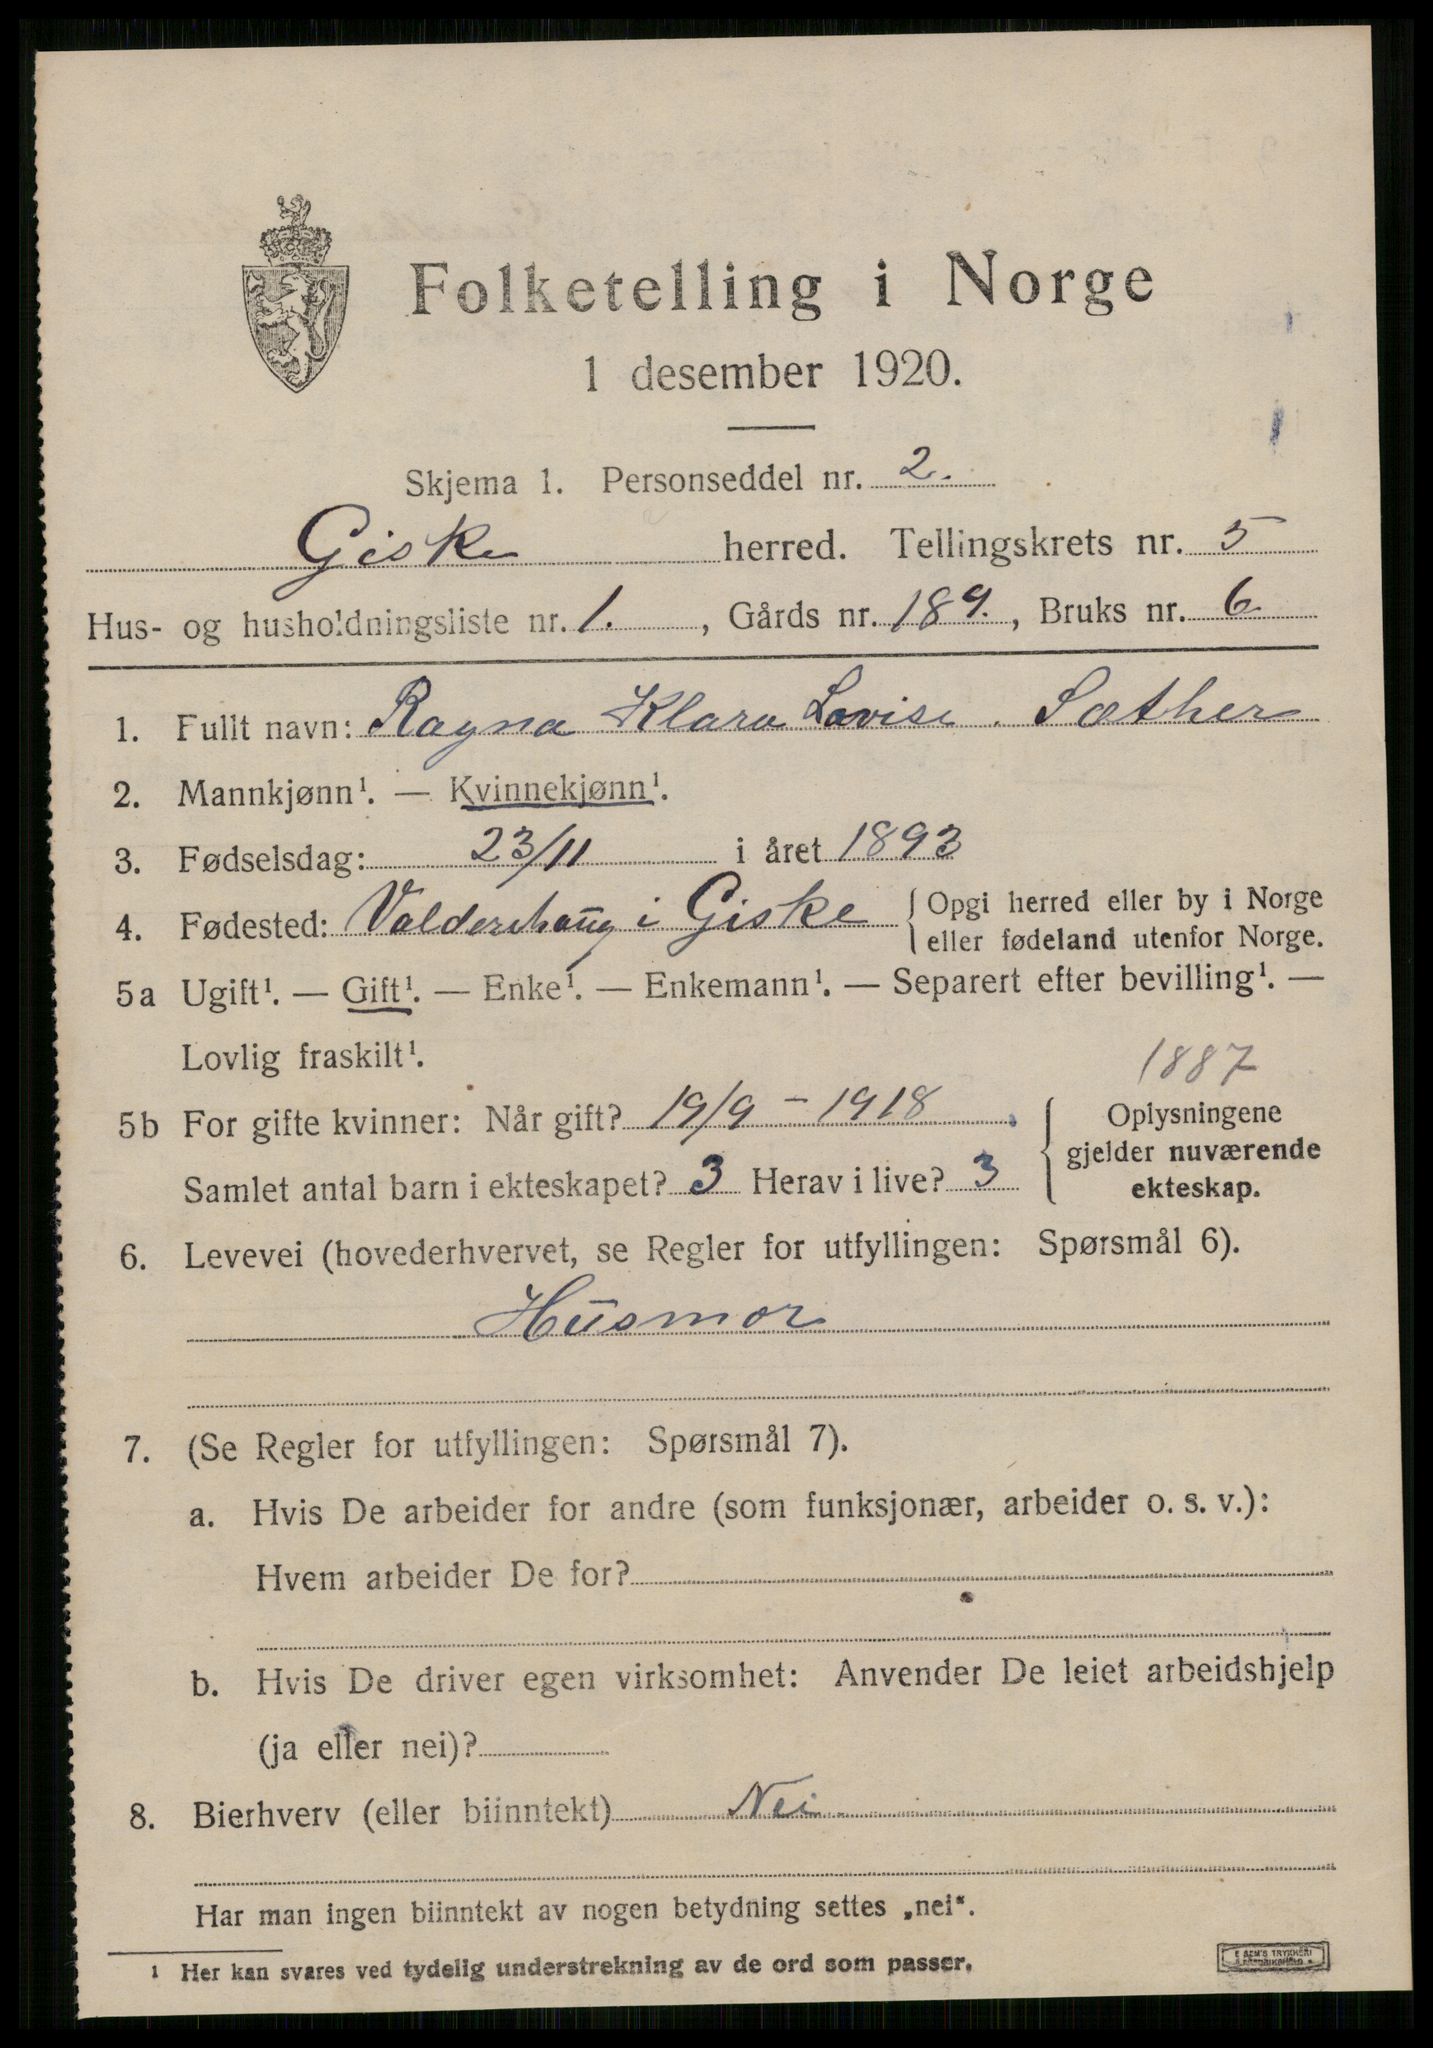 Folketelling i Norge
1 desember 1920.
Skjema 1. Personseddel nr. 2.
Giske herred. Tellingskrets nr. 5
Hus- og husholdningsliste nr. 1. , Gårds nr. 189. , Bruks nr. 6
1. Fullt navn: Ragna Klara Lovise. Sæther
2. Mannkjønn¹. — Kvinnekjønn¹.
3. Fødselsdag: 23/11 i året 1893
4. Fødested: Valderhaug i Giske { Opgi herred eller by i Norge
eller fødeland utenfor Norge.
5a Ugift¹. — Gift¹. — Enke¹. — Enkemann¹. — Separert efter bevilling¹. —
Lovlig fraskilt¹.
1887
5b For gifte kvinner: Når gift? 19/9 - 1918
Samlet antal barn i ekteskapet? 3 Herav i live? 3
{ Oplysningene
gjelder nuværende
ekteskap.
6. Levevei (hovederhvervet, se Regler for utfyllingen: Spørsmål 6).
Husmor
7. (Se Regler for utfyllingen: Spørsmål 7).
a. Hvis De arbeider for andre (som funksjonær, arbeider o. s. v.):
Hvem arbeider De for?
b. Hvis De driver egen virksomhet: Anvender De leiet arbeidshjelp
(ja eller nei)?
8. Bierhverv (eller biinntekt) Nei
Har man ingen biinntekt av nogen betydning settes „nei“.
¹ Her kan svares ved tydelig understrekning av de ord som passer.
E SEM'S TRYKKERI